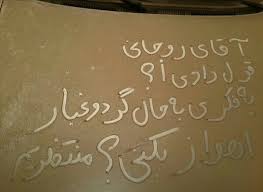 آقای روحانی
قول دادی آ؟
یه فکری به حال گرد و غبار
اهواز نکنی؟ منتظریم